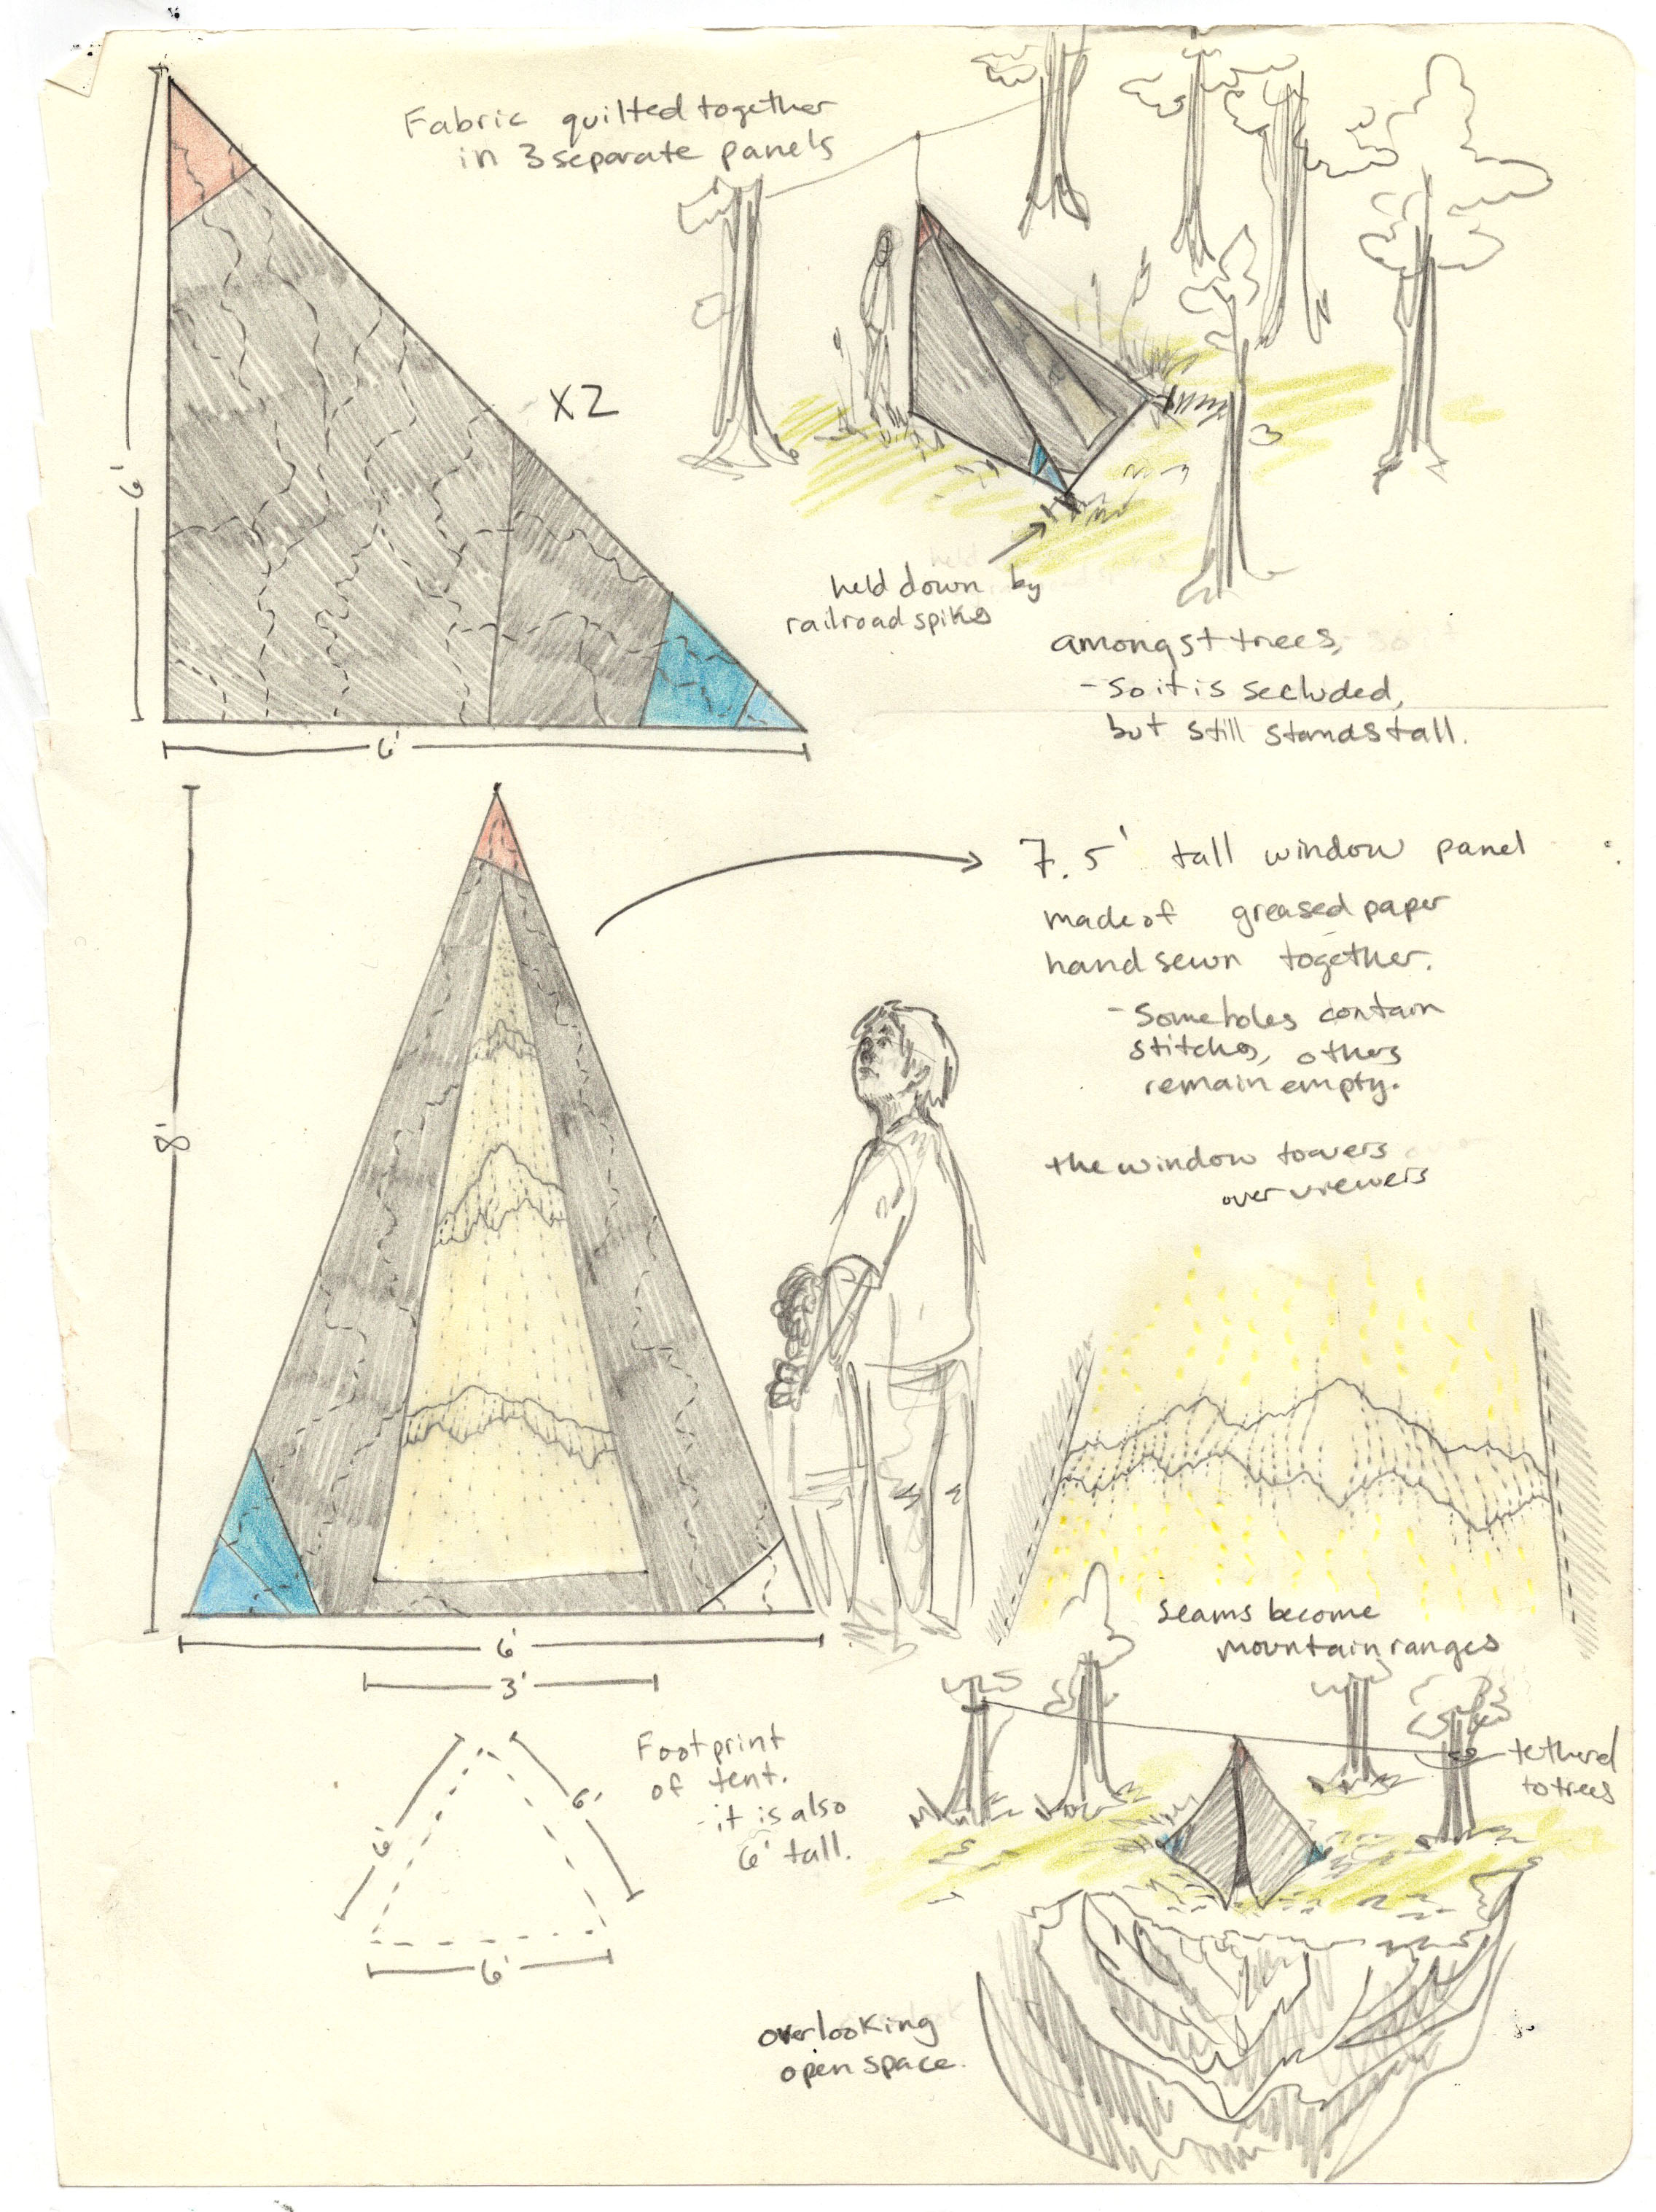 Fabric quilted together
in 3 separate panels
6'
X2
6'
held down by
railroad spikes
amongst trees,
- So it is secluded,
but still stands tall.
8'
7.5' tall window panel
made of greased paper
hand sewn together.
- Some holes contain
stitches, others
remain empty.
the window towers
over viewers
6'
3'
seams become
mountain ranges
Footprint
of tent.
- it is also
6' tall.
6'
6'
6'
tetherd
to trees
overlooking
open space.